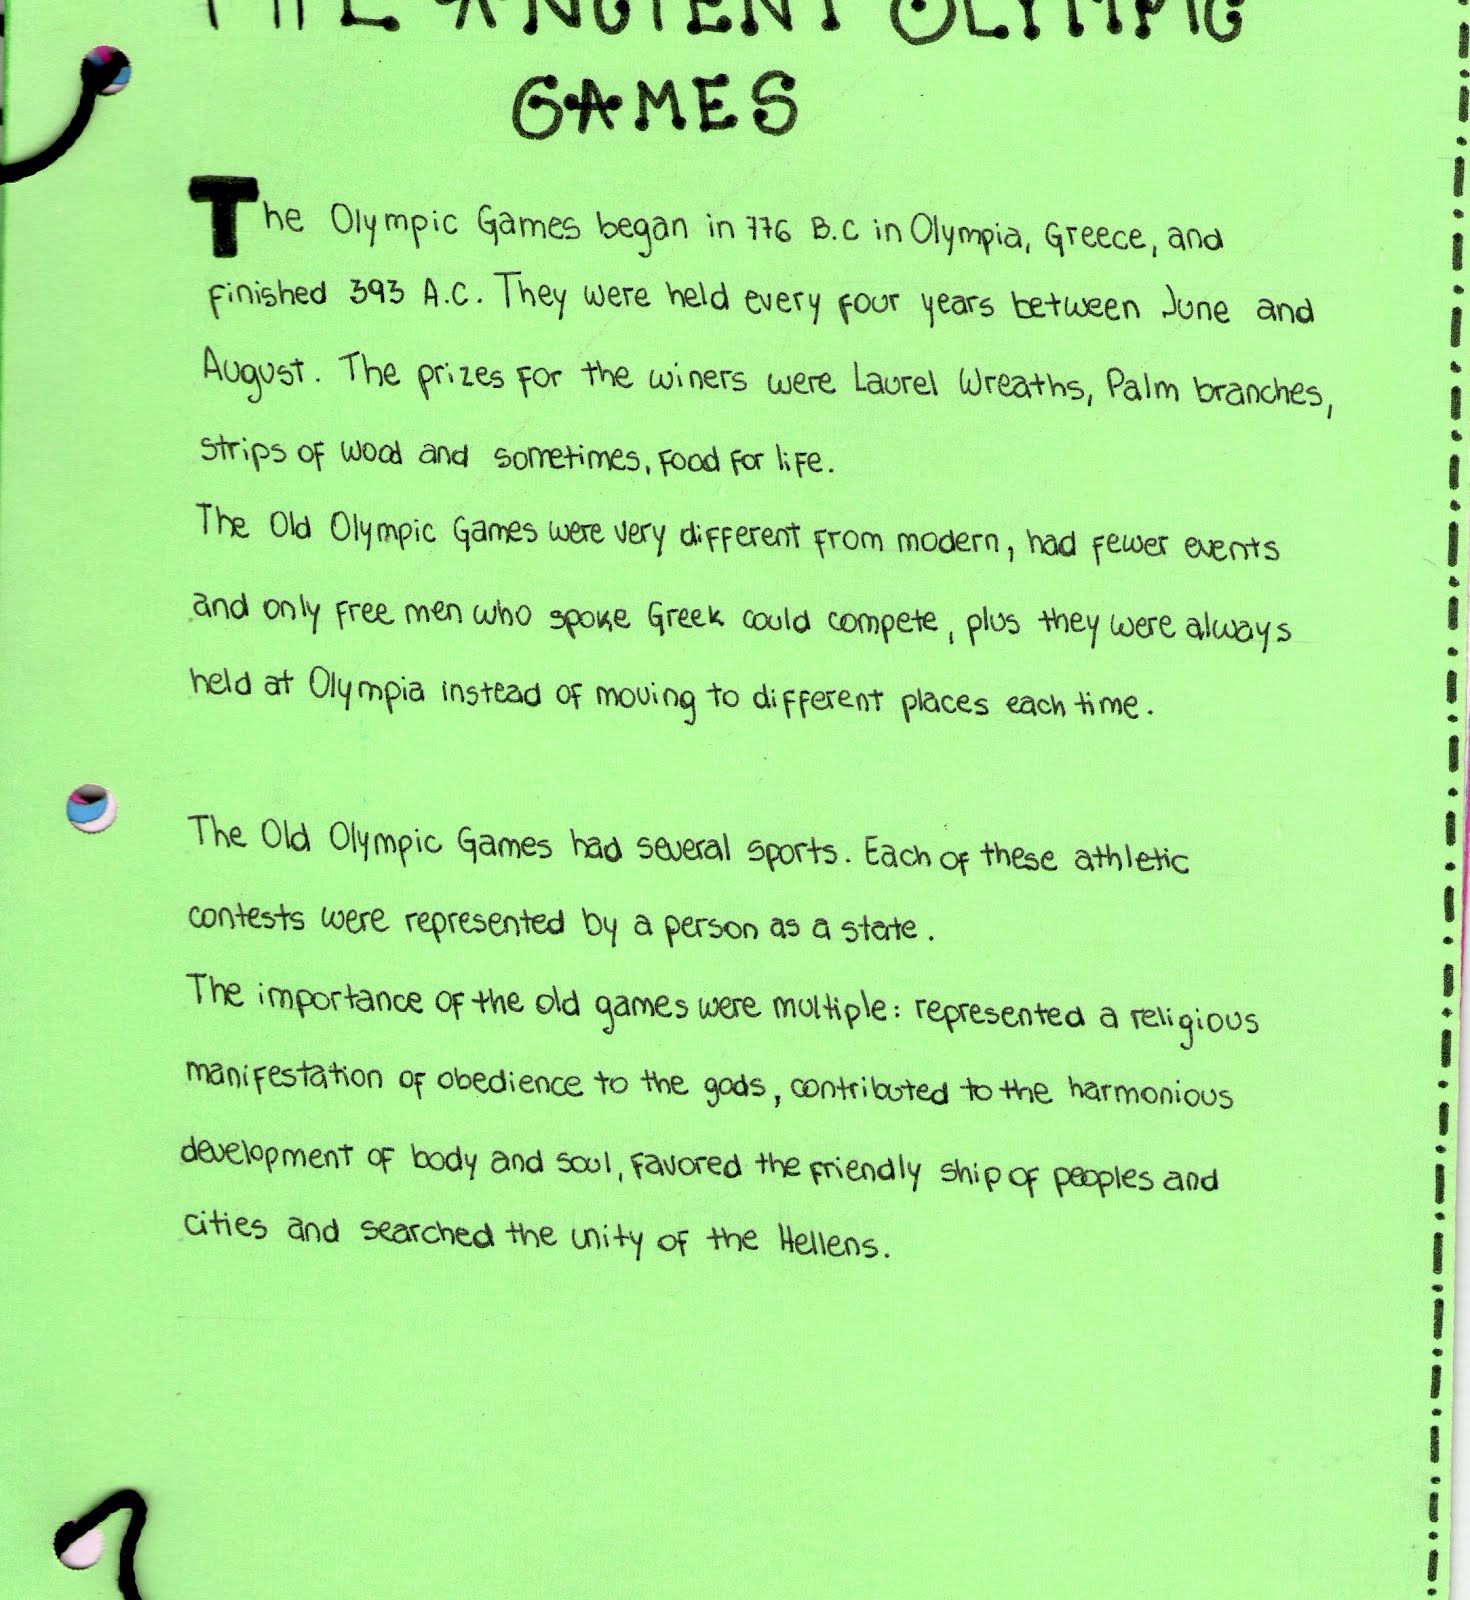 THE ANCIENT OLYMPIC
GAMES
The Olympic Games began in 776 B.C in Olympia, Greece, and
finished 393 A.C. They were held every four years between June and
August. The prizes for the winers were Laurel Wreaths, Palm branches,
strips of wood and sometimes, food for life.
The Old Olympic Games were very different from modern, had fewer events
and only free men who spoke Greek could compete, plus they were always
held at Olympia instead of moving to different places each time.
The Old Olympic Games had several sports. Each of these athletic
contests were represented by a person as a state.
The importance of the old games were multiple: represented a religious
manifestation of obedience to the gods, contributed to the harmonious
development of body and soul, favored the friendly ship of peoples and
cities and searched the unity of the Hellens.